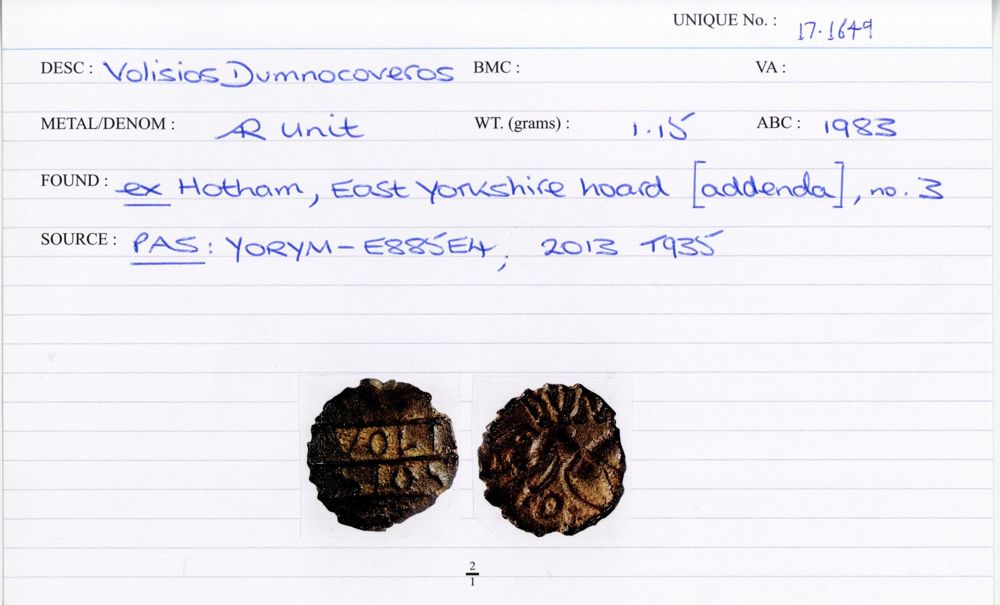 UNIQUE No. : 17.1649
DESC : Volisios Dumnocoveros BMC : VA :
METAL/DENOM : AR Unit WT. (grams) : 1.15 ABC : 1983
FOUND : ex Hotham, East Yorkshire hoard [addenda], no. 3
SOURCE : PAS: YORYM-E885E4, 2013 T935
VOLI
IOS
DVM
2
1